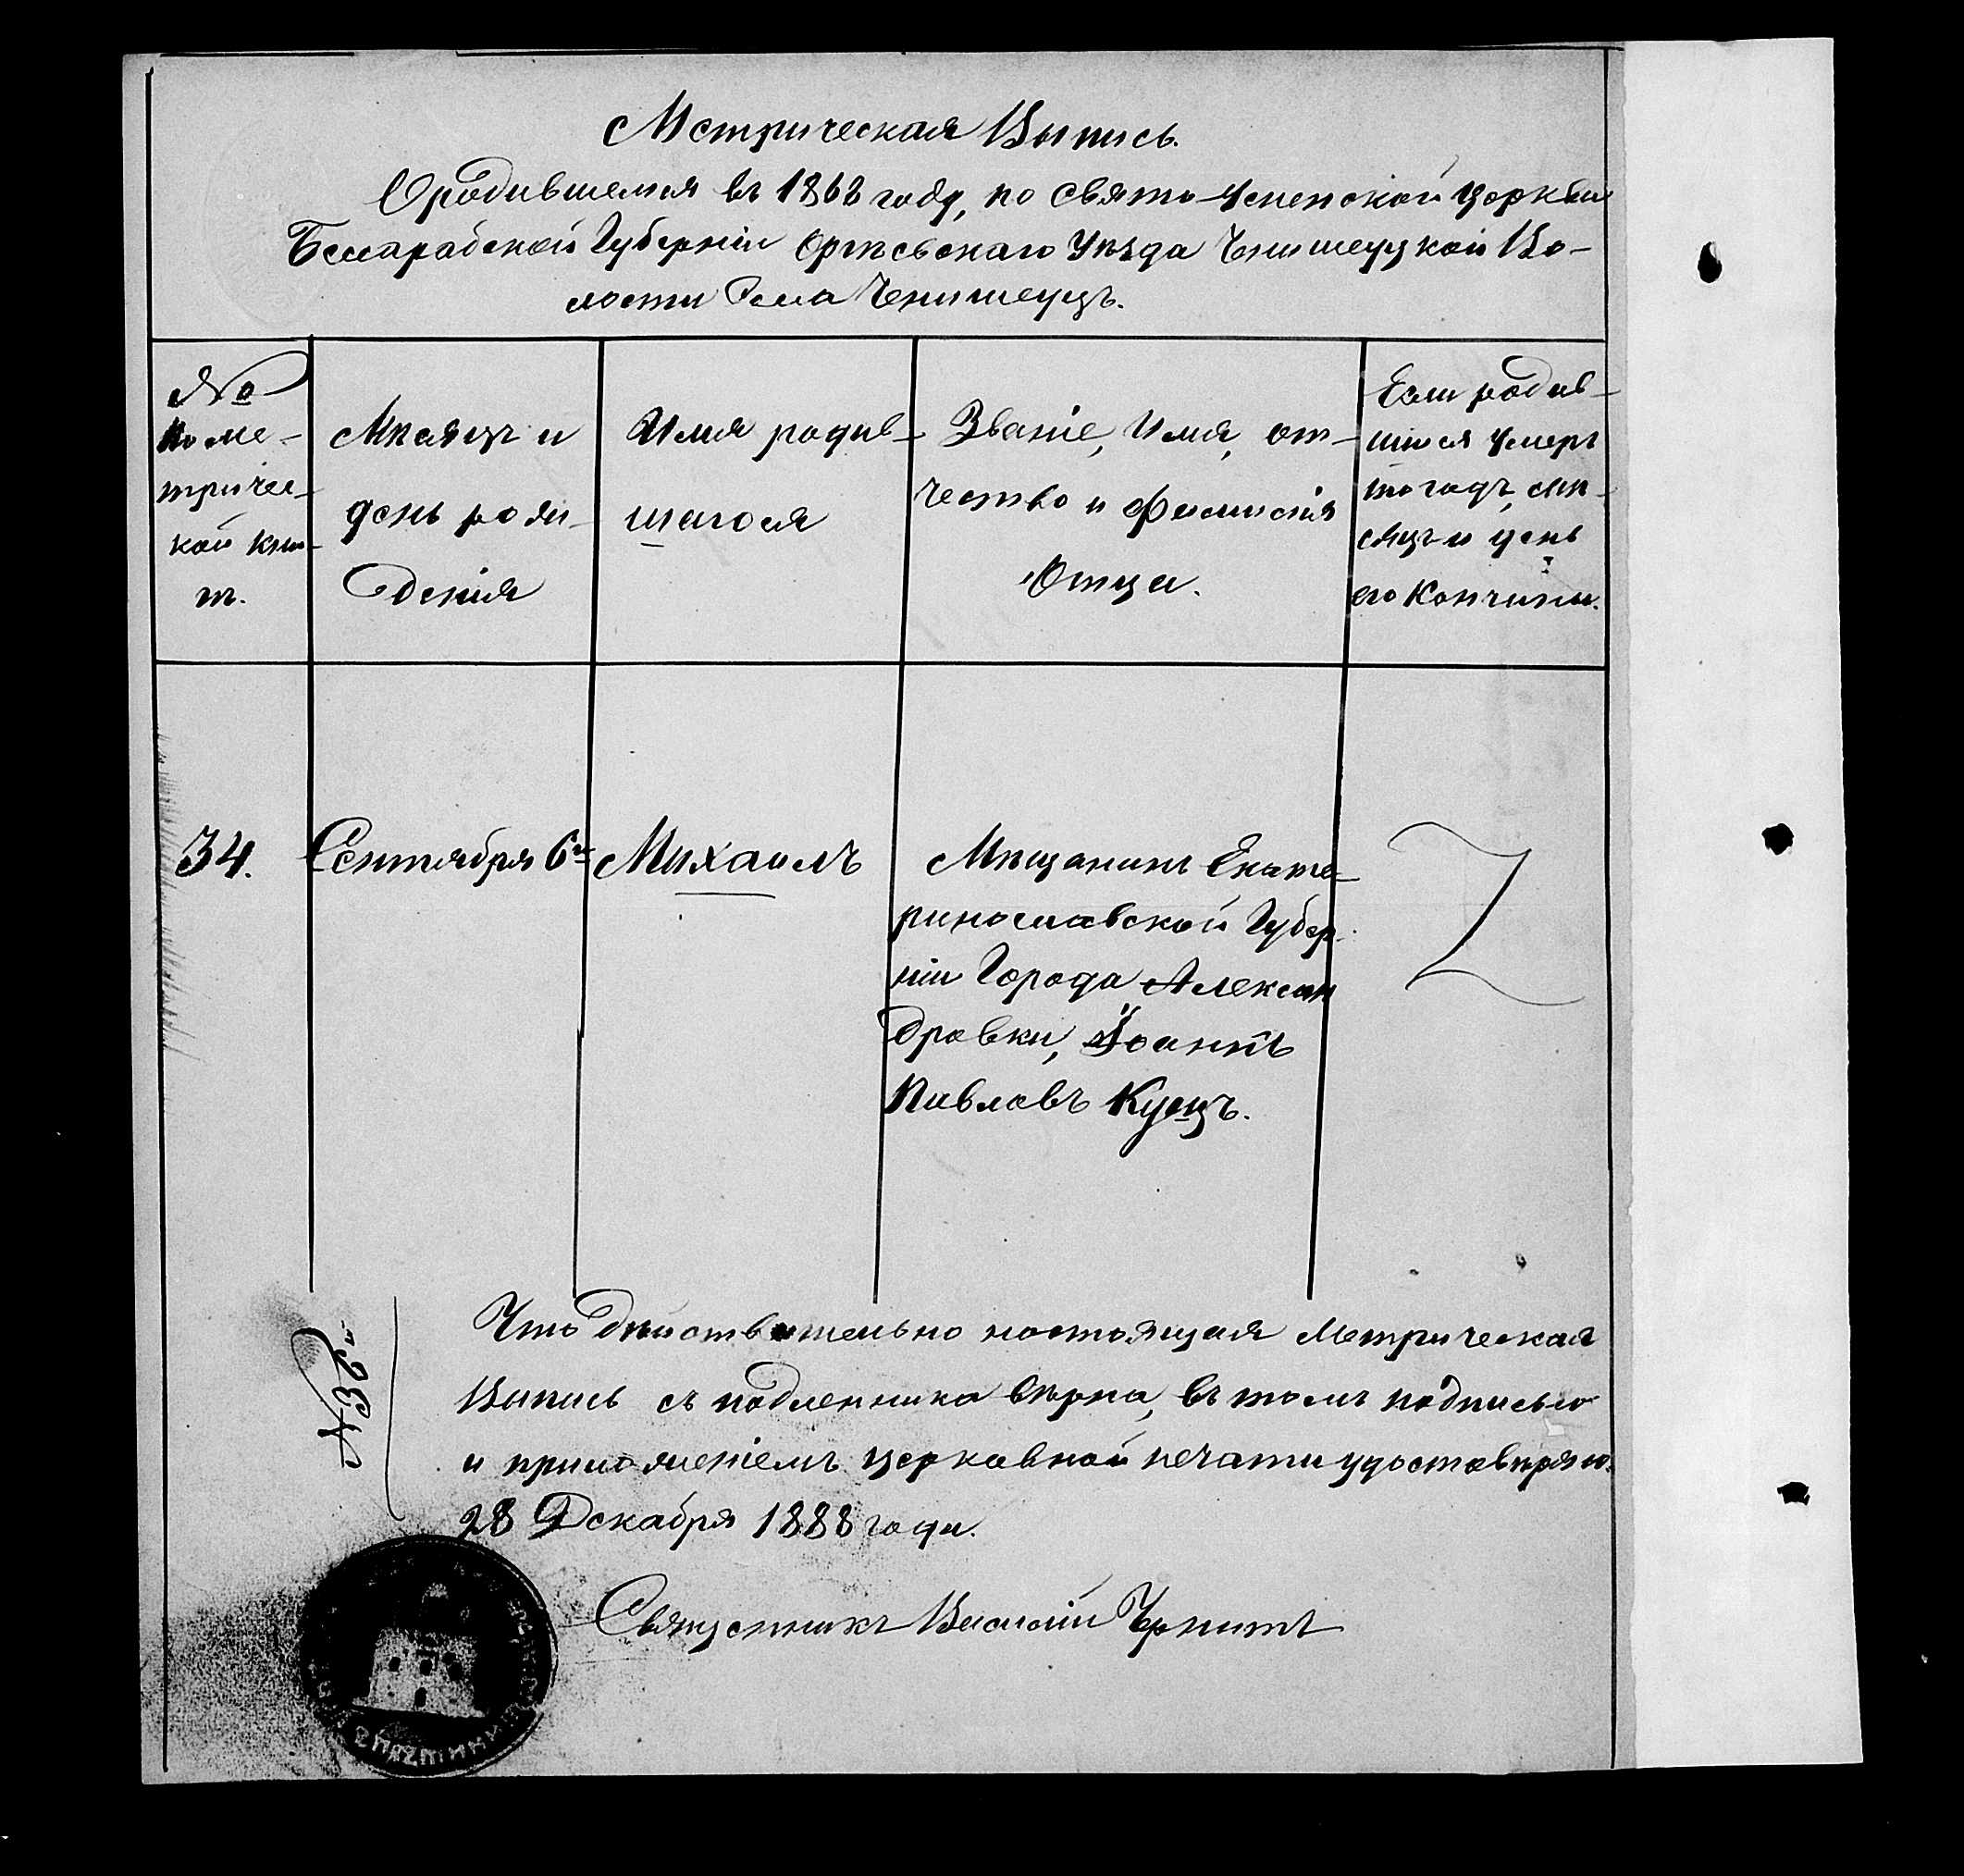 Метрическая Выпись.
О родившемся въ 1868 году, по Свято-Успенской Церкви
Бессарабской Губерніи Оргѣевскаго Уѣзда Чинишеуцкой Во-
лости Села Чинишеуцъ.
№
по ме-
триче-
ской кни-
гѣ.
Мѣсяцъ и
день рож-
денія
Имя родив-
шагося
Званіе, Имя, от-
чество и Фамилія
Отца.
Если родив-
шійся умеръ
то годъ, мѣ-
сяцъ и день
его кончины.
34.
Сентября 6го
Михаилъ
Мѣщанинъ Екате-
ринославской Губер-
ніи Города Алексан
дровки, Іоаннъ
Павловъ Куецъ.
Что дѣйствительно настоящая Метрическая
Выпись съ подленника вѣрна, въ томъ подписью
и приложеніемъ церковной печати удостовѣряю.
28 Декабря 1888 года.
№32
Священникъ Василій